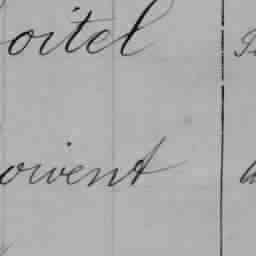 oitel
oivent